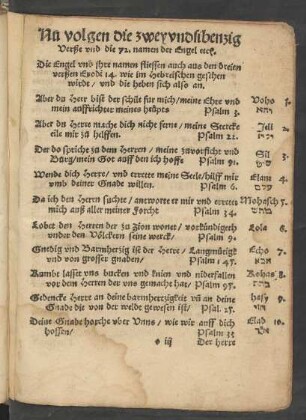 Nu volgen die zweyvndsibenzig
Verße vnd die 72. namen der Engel etc.
Die Engel vnd jhre namen fliessen auch aus den dreien
versen Exodi 14. wie im Hebreischen gesehen
wirdt / vnd die heben sich also an.
Aber du Herr bist der schilt für mich / meine Ehre vnd
mein auffrichter meines heupts Psalm 3.
Aber du Herre mache dich nicht ferne / meine Stercke
eile mir zu helffen. Psalm 22.
Der do spricht zu dem Herren / meine zuvorsicht vnd
Burg / mein Got auff den ich hoffe Psalm 91.
Wende dich Herre / vnd errette meine Sele / hilff mir
vmb deiner Gnade willen. Psalm 6.
Da ich den Herrn suchte / antwortet er mir vnd errettet
mich auß aller meiner Forcht Psalm 34.
Lobet den Herren der zu Zion wonet / vorkündigeth
vnder den Völckern seine werck / Psalm 9.
Gnedig vnd Barmherzig ist der Herre / Langmütigk
vnd von grosser gnaden / Psalm 147.
Kumbt lasset vns bucken vnd knien vnd niderfallen
vor dem Herren der vns gemacht hat / Psalm 95.
Gedencke Herre an deine barmherzigkeit vn an deine
Gnade die von der welde gewesen ist / Psal. 25.
Deine Gnade Herre vber Vnns / wie wir auff dich
hoffen / Psalm 33
Veho 1.
והוא
Jeli 2.
Sil 3.
Elam 4.
עלם
Mohasch 5.
מהש
Lola 6.
Echo 7.
אכא
Kahas 8.
כהת
hasy 9.
הזי
Elad 10.
אלד
iij Der herre